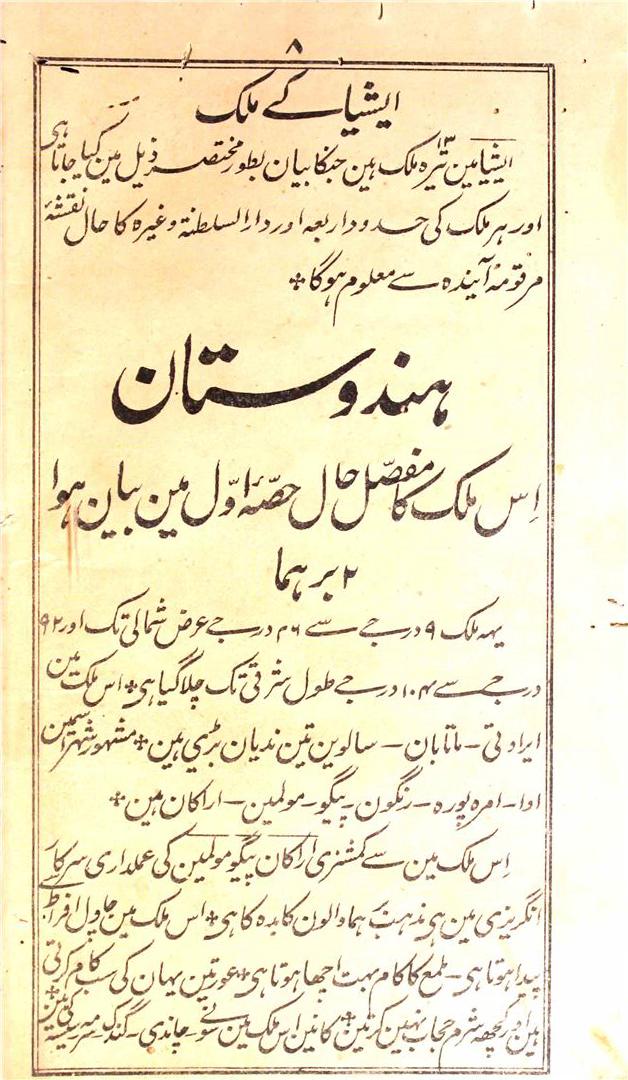 ۸
ایشیا کے ملک
ایشیا مین ۱۳ تیرہ ملک ہین جنکا بیان بطور مختصر ذیل مین کیا جاتا ہی
اور ہر ملک کی حدود اربعہ اور دار السلطنۃ وغیرہ کا حال نقشۂ
مرقومۂ آیندہ سے معلوم ہوگا +
ہندوستان
اِس ملک کا مفصّل حال حصّۂ اوّل مین بیان ہوا
۲ برہما
یہہ ملک ۹ درجے سے ۲۶ درجے عرض شمالی تک اور ۹۲
درجے سے ۱۰۴ درجے طول شرقی تک چلا گیا ہی + اس ملک مین
ایراوتی - ماتابان - سالوین تین ندیان بڑی ہین + مشہور شہر اسمین
اوا - امرہ پورہ - رنگون - پیگو - مولمین - اراکان ہین +
اِس ملک مین سے کمشنری اراکان پیگو مولمین کی عملداری سرکار
انگریزی مین ہی مذہب برہما والون کا بدہ کا ہی + اس ملک مین چاول افراط سے
پیدا ہوتا ہی - طمع کا کام بہت اچھا ہوتا ہی + عورتین یہان کی سب کام کرتی
ہین اور کچھہ شرم حجاب نہین کرتین + کانین اس ملک مین سونے - چاندی - گندک - سرمہ سیسہ کی ہین +